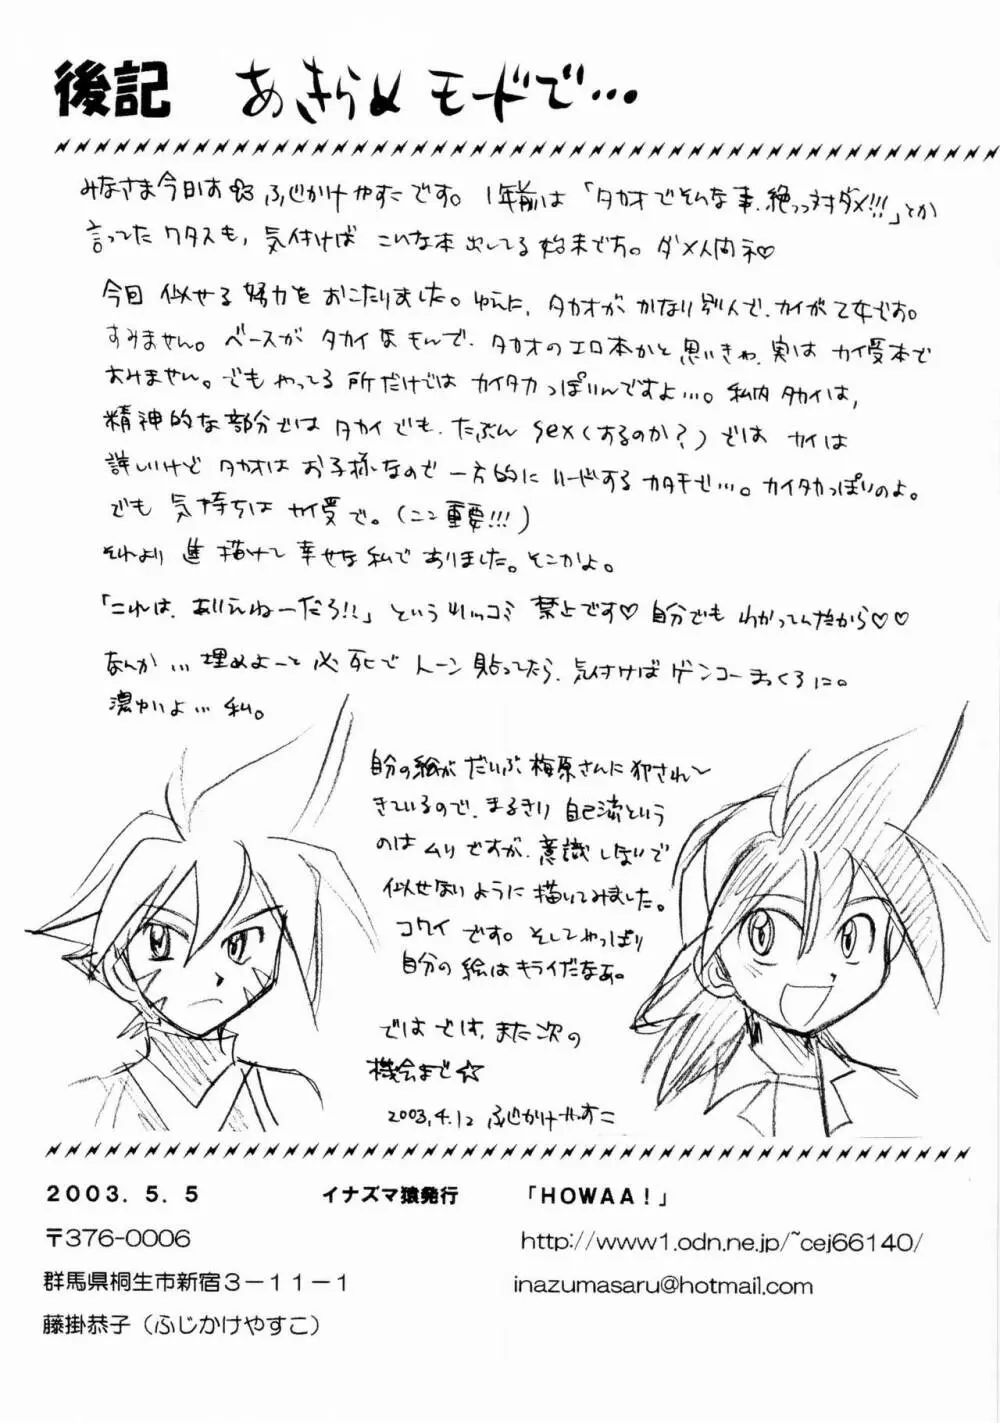 後記 あきらめモードで…
みなさま今日わ ふじかけやすこです。1年前は「タカオでそんな事、絶っっ対ダメ!!!」とか
言ってたワタスも、気付けば こんな本出してる始末です。ダメ人間ネ♡
今回 似せる努力をおこたりました。ゆえに、タカオがかなり別人で、カイが乙女です。
すみません。ベースがタカイなもんで、タカオのエロ本かと思いきや、実は カイ受本で
すみません。でもやってる所だけでは カイタカっぽいんですよ…。私内タカイは、
精神的な部分では タカイでも、たぶん sex(するのか?)では カイは
詳しいけど タカオは お子様なので 一方的に リードするカタチで…。カイタカっぽいのよ。
でも 気持ちは カイ受で。(ココ重要!!!)
それより 進 描けて 幸せな私でありました。そこかよ。
「これは、ありえねーだろ!!」という ツッコミ 禁止です♡ 自分でも わかってんだから♡♡
なんか…埋めよーと必死で トーン貼ってたら、気付けばゲンコーまっくろに。
濃かいよ…私。
自分の絵が だいぶ 梅原さんに犯され〜
きているので、まるきり 自己流という
のは ムリ ですが、意識 しないで
似せないように 描いてみました。
コワイ です。そしてやっぱり
自分の 絵は キライだなぁ。
では では、また 次の
機会まで☆
2003.4.12 ふじかけやすこ
2003.5.5 イナズマ猿発行 「HOWAA!」
〒376-0006 http://www1.odn.ne.jp/~cej66140/
群馬県桐生市新宿3-11-1 inazumasaru@hotmail.com
藤掛恭子(ふじかけやすこ)